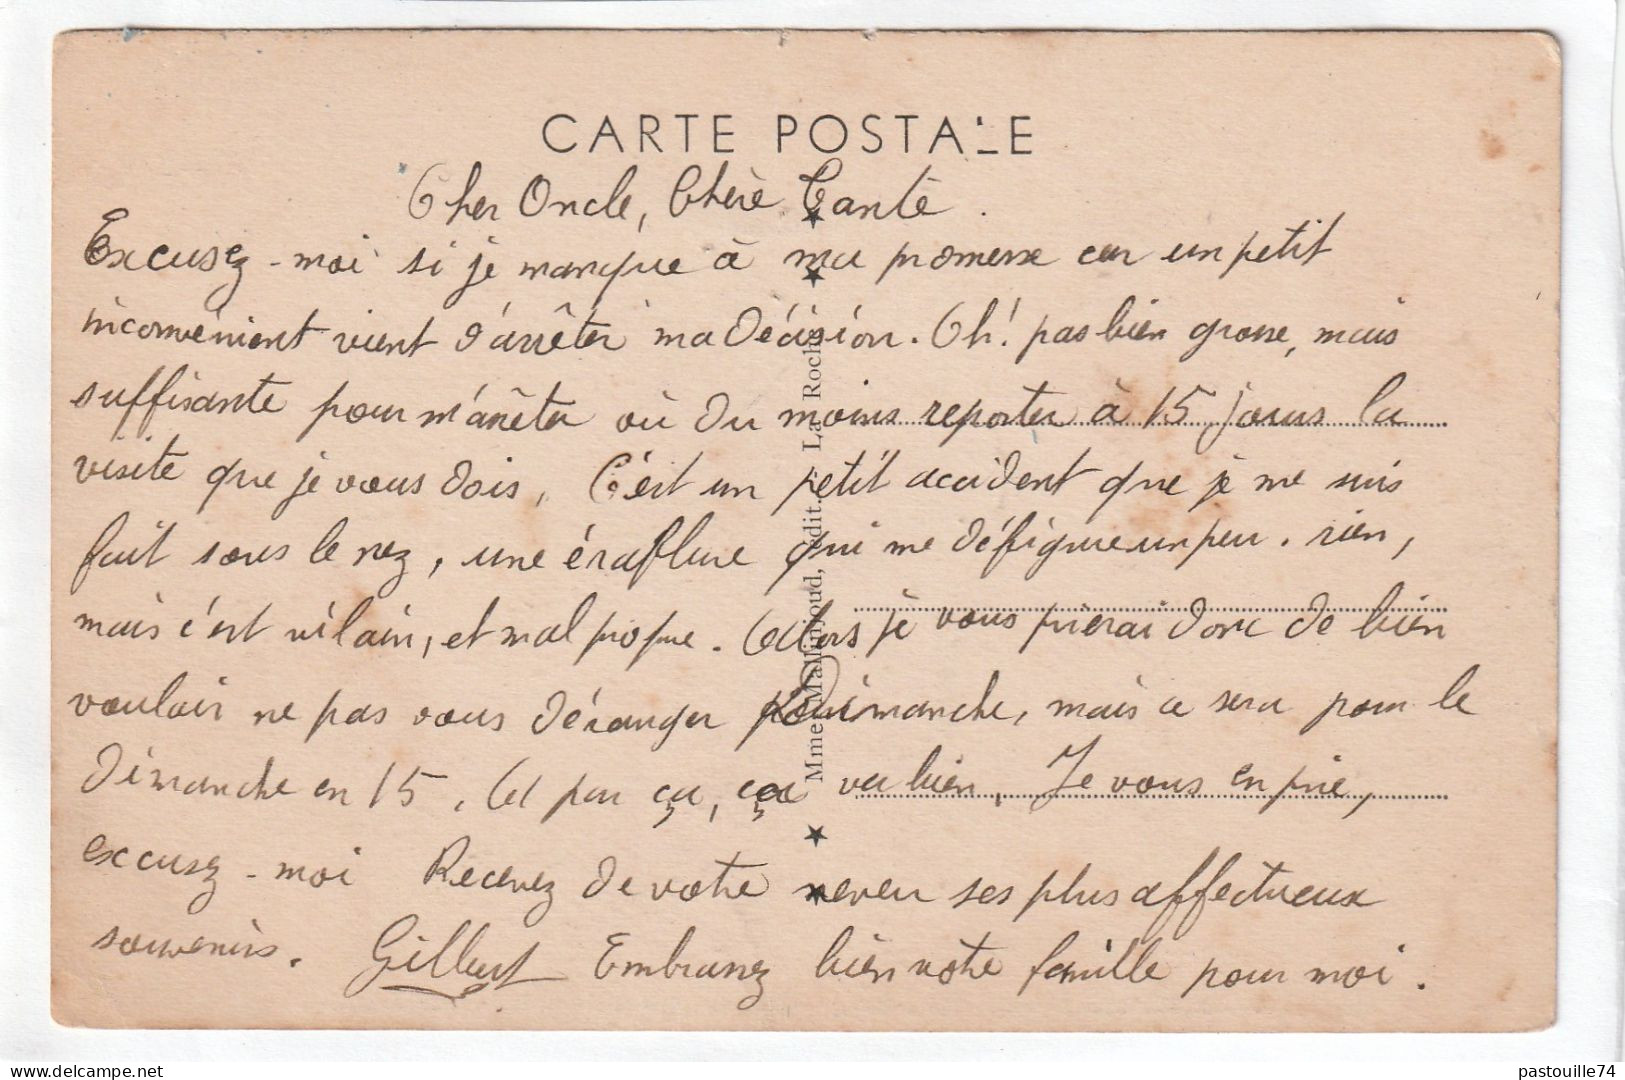 CARTE POSTALE
Cher Oncle, Chère Tante.
Excusez-moi si je manque à ma promesse car un petit
inconvénient vient d'arrêter ma décision. Oh! pas bien grosse, mais
suffisante pour m'arrêter où du moins reporter à 15 jours la
visite que je vous dois. C'est un petit accident que je me suis
fait sous le nez, une éraflure qui me défigure un peu. rien,
mais c'est vilain, et mal propre. Alors je vous prierai donc de bien
vouloir ne pas vous déranger Dimanche, mais ce sera pour le
Dimanche en 15. Et par ça, ça va bien. Je vous en prie,
excusez-moi Recevez de votre neveu ses plus affectueux
souvenirs. Gilbert Embrassez bien votre famille pour moi.
Mme Mallinjoud, édit. La Roche
delcampe.net
pastouille74